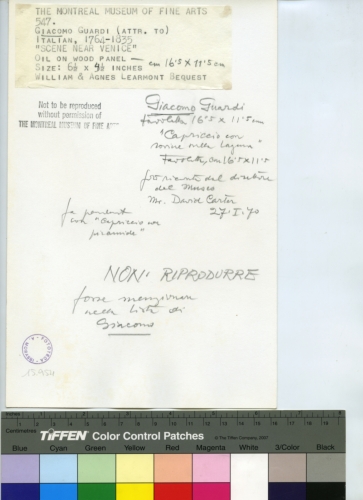 THE MONTREAL MUSEUM OF FINE ARTS
547.
GIACOMO GUARDI (ATTR. TO)
ITALIAN, 1764-1835
"SCENE NEAR VENICE"
OIL ON WOOD PANEL — cm 16.5 x 11.5 cm
SIZE: 6½ x 4½ INCHES
WILLIAM & AGNES LEARMONT BEQUEST
Not to be reproduced
without permission of
THE MONTREAL MUSEUM OF FINE
Giacomo Guardi
tavoletta 16'5 x 11.5 cm
"Capriccio con
rovine nella laguna"
Tavoletta, cm 16'5 x 11.5
foto ricevuta dal direttore
del Museo
Mr. David Carter
27.I.70
fa pendant
con "Capriccio con
piramide"
NON RIPRODURRE
forse menzionare
nella lista di
Giacomo
FOTOTECA
Inches
Centimetres
TIFFEN Color Control Patches
© The Tiffen Company, 2007
Blue Cyan Green Yellow Red Magenta White 3/Color Black